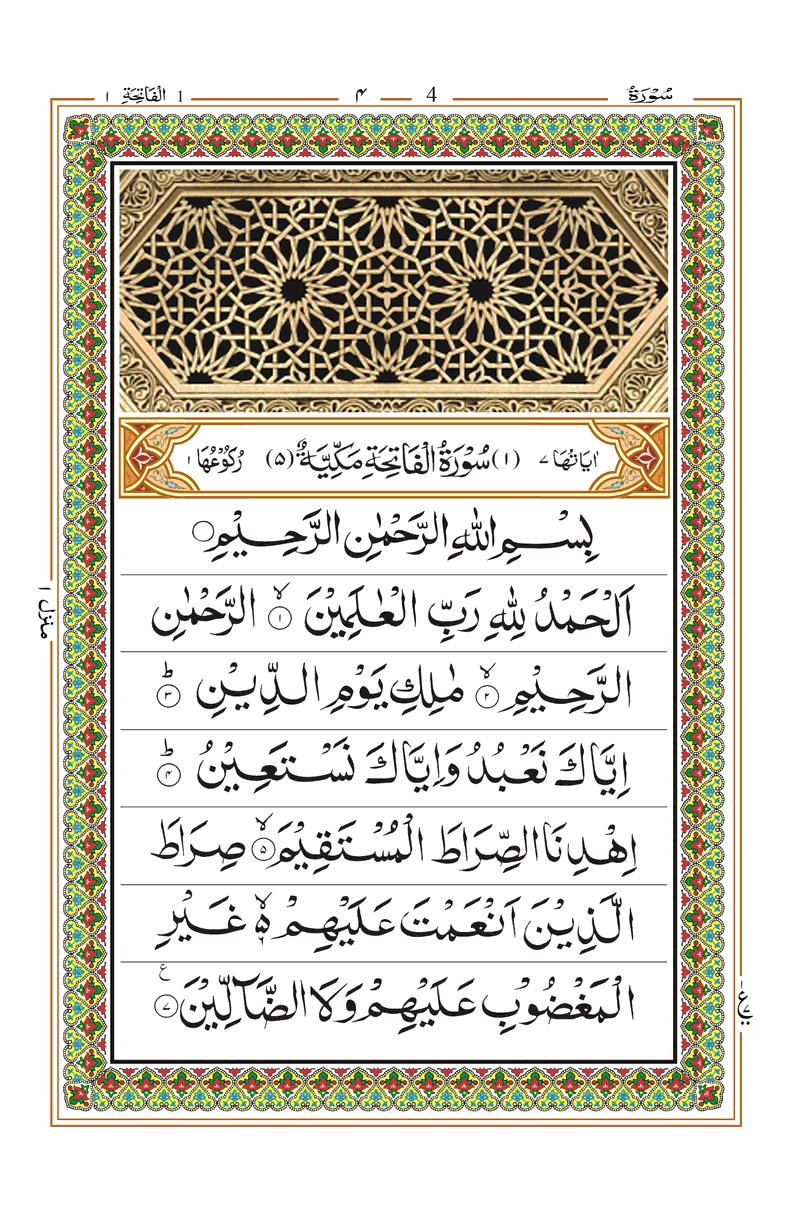 سُوْرَةُ 4 ۴ 1 اَلْفَاتِحَة ۱
اٰیَاتُهَا ۷ (۱) سُوْرَةُ الْفَاتِحَةِ مَكِّيَّةٌ (۵) رُكُوْعُهَا ۱
بِسْمِ اللهِ الرَّحْمٰنِ الرَّحِيْمِ ۝
اَلْحَمْدُ لِلّٰهِ رَبِّ الْعٰلَمِيْنَ ۙ ۱ الرَّحْمٰنِ
الرَّحِيْمِ ۙ ۲ مٰلِكِ يَوْمِ الدِّيْنِ ؕ ۳
اِيَّاكَ نَعْبُدُ وَاِيَّاكَ نَسْتَعِيْنُ ؕ ۴
اِهْدِنَا الصِّرَاطَ الْمُسْتَقِيْمَ ۙ ۵ صِرَاطَ
الَّذِيْنَ اَنْعَمْتَ عَلَيْهِمْ ۙ۬ ۶ غَيْرِ
الْمَغْضُوْبِ عَلَيْهِمْ وَلَا الضَّآلِّيْنَ ۷ ع
منزل ۱